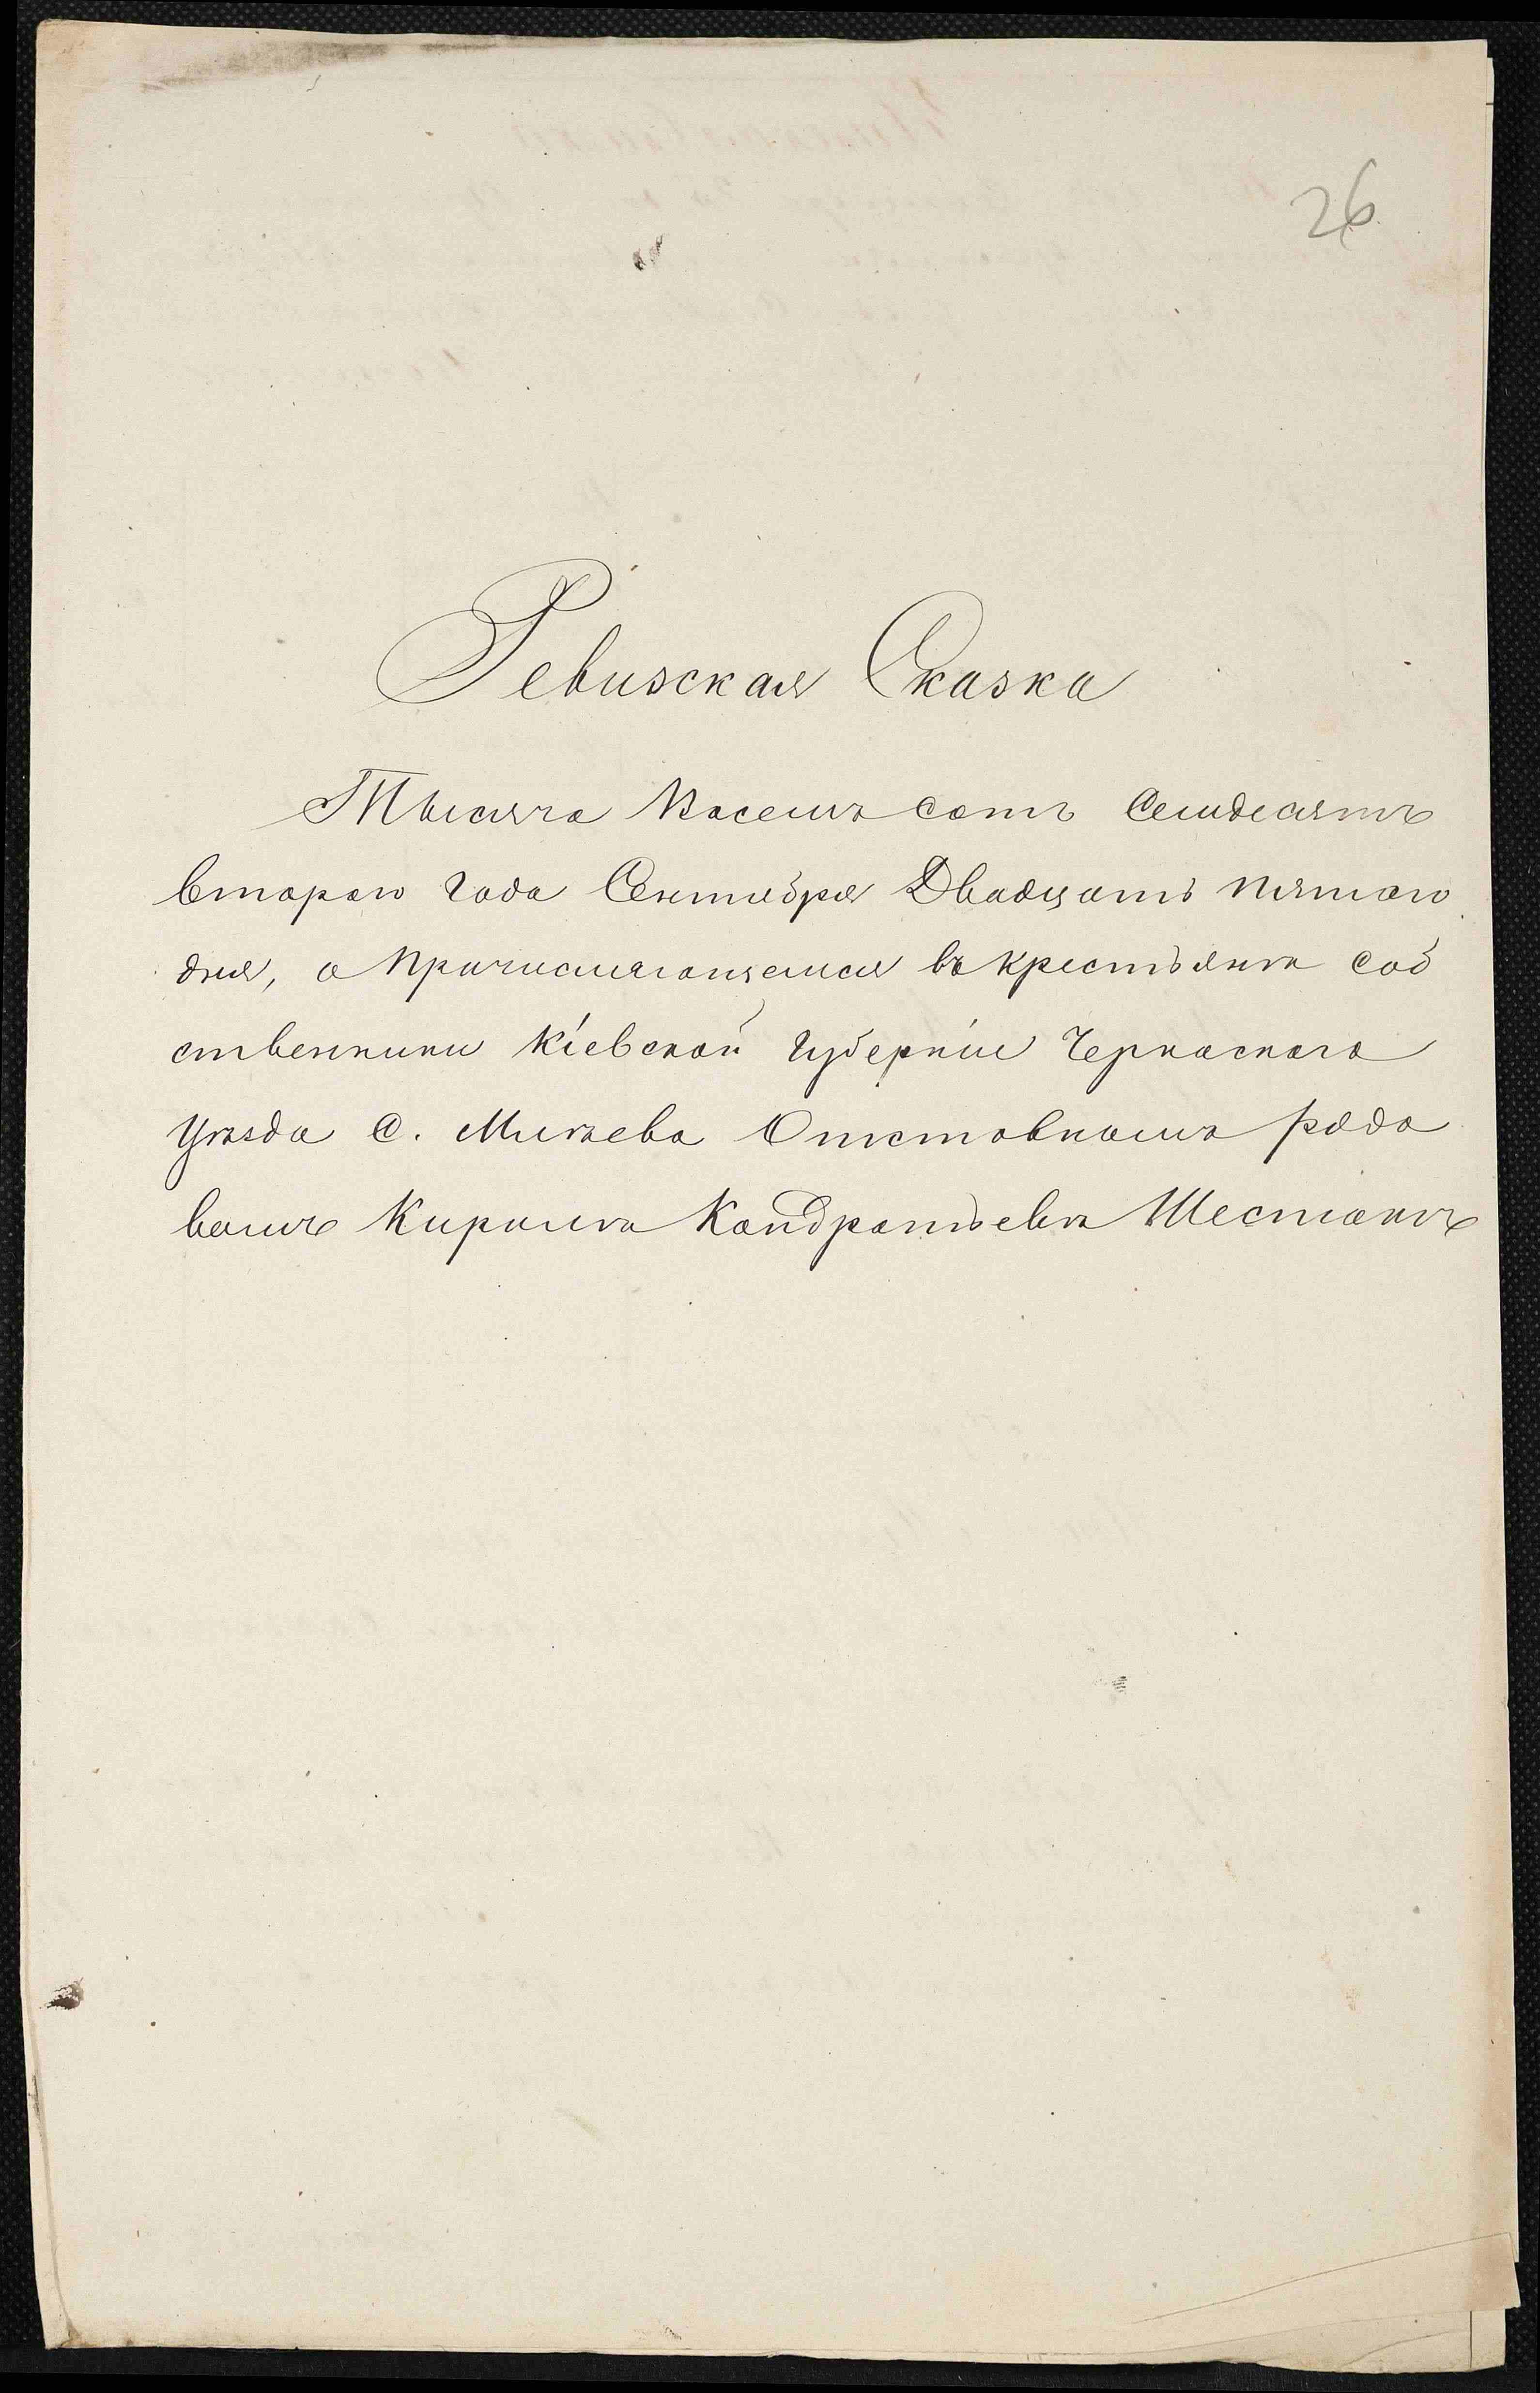 26
Ревизская Сказка
Тысяча Восемъ сотъ Семдесятъ
втораго года Сентября Двадцать пятаго
дня, о Причисляющемся въ крестьяне соб
ственники Кіевской губерніи Черкаскаго
уезда С. Млиева Отставномъ рядо
вомъ Кирилѣ Кондратьевѣ Шестакѣ